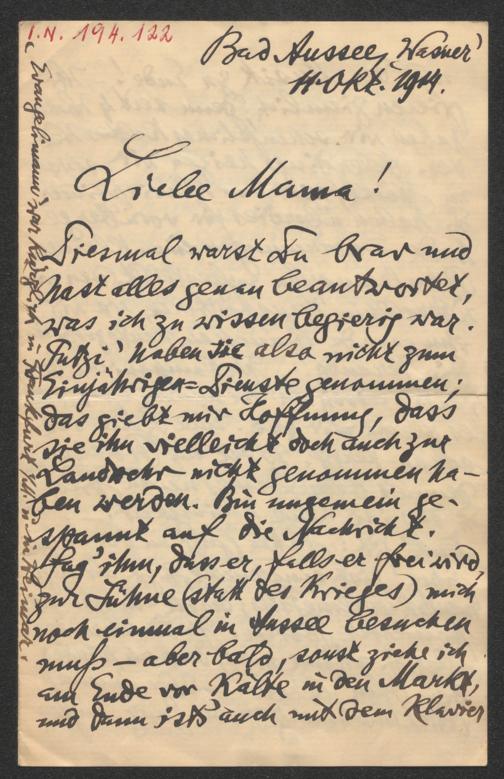 I.N. 194.122
Bad Aussee, Wasner'
11. Okt. 1914.
Liebe Mama!
Diesmal warst Du brav und
hast alles genau beantwortet,
was ich zu wissen begierig war.
'Putzi' haben sie also nicht zum
Einjährigen-Dienste genommen;
das giebt mir Hoffnung, dass
sie ihn vielleicht doch auch zur
Landwehr nicht genommen ha-
ben werden. Bin ungemein ge-
spannt auf die Nachricht.
Sag' ihm, dass er, falls er frei wird,
zur Sühne (statt des Krieges) mich
noch einmal in Aussee besuchen
muß – aber bald, sonst ziehe ich
am Ende vor Kälte in den Markt,
und dann ists auch mit dem Klavier
'Evangelimann' war kürzlich in Frankfurt und in Weimar.